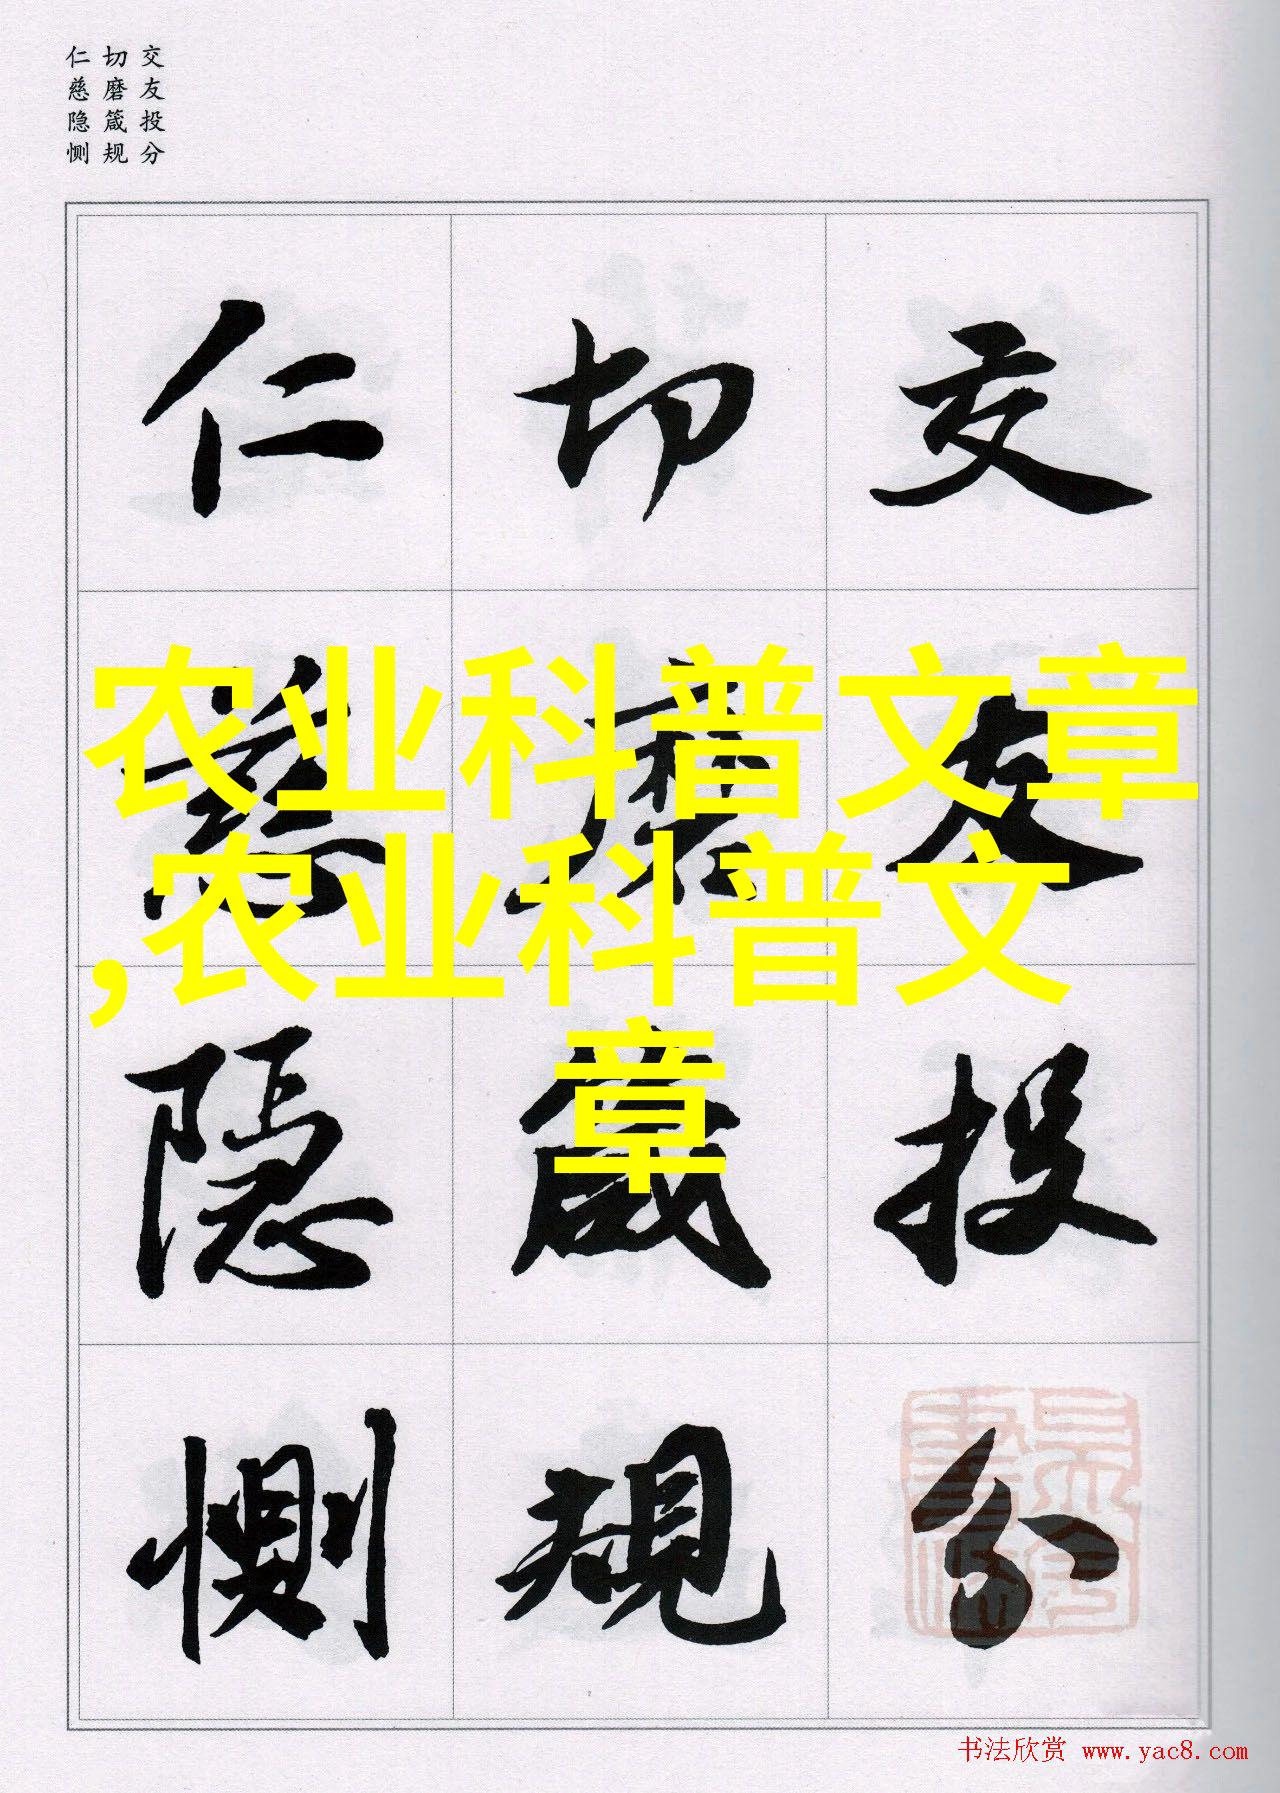 交友投分
切磨箴规
仁慈隐恻
交友投分
切磨箴規
仁慈隱惻
农业科普文章
,农业科普文
章
书法欣赏 www.yac8.com